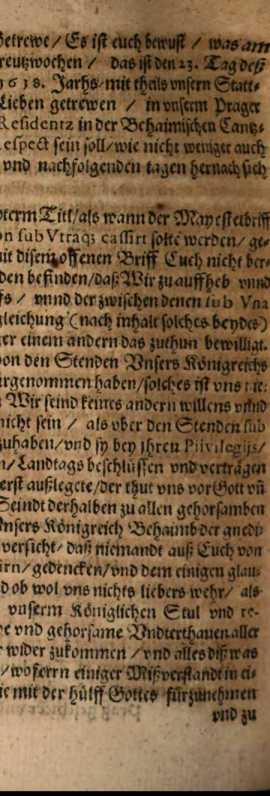 Getrewe / Es ist euch bewust / was am
reutzwochen / das ist den 23. Tag deß
1618. Jarhs / mit theils vnsern Statt-
Lieben getrewen / in vnserm Prager
Residentz in der Behaimischen Cantz-
espect sein soll / wie nicht weniger auch
vnd nachfolgenden tagen hernach sich
term Titl / als wann der Mayestetbriff
on sub Vtraq; cassirt solte werden / ge-
mit disem offenen Briff Euch nicht ber-
den befinden / daß Wir zu auffheb vnnd
fs / vnnd der zwischen denen sub Vna
gleichung (nach inhalt solches beydes)
er einem andern das zuthun bewilligt.
von den Stenden Vnsers Königreichs
ürgenommen haben / solches ist vns
Wir seind keines andern willens vnnd
nicht sein / als vber den Stenden sub
zuhaben / vnd sy bey ihren Privilegijs /
n / Landtags beschlüssen vnd verträgen
erst außlegete / der thut vns vor Gott vñ
Seindt derhalben zu allen gehorsamben
Vnsers Königreich Behaimb der gnedi-
versicht / daß niemandt auß Euch von
ürn / gedencken / vnd dem einigen glau-
d ob wol vns nichts liebers wehr / als
vnserm Königlichen Stul vnd re-
e vnd gehorsame Vndterthanen aller
r wider zukommen / vnd alles diß was
/ wofern einiger Mißverstandt in ei-
ie mit der hülff Gottes fürzunehmen
vnd zu